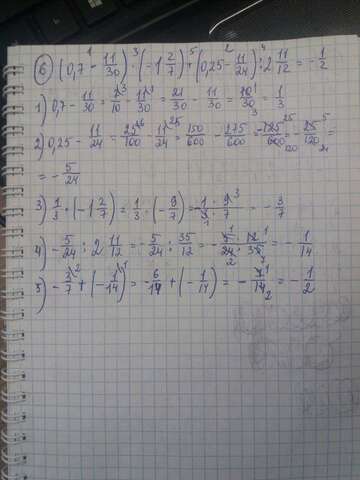 ⑥ (0,7 - 11/30) · (-1 2/7) + (0,25 - 11/24) : 2 11/12 = -1/2
1) 0,7 - 11/30 = 7/10 - 11/30 = 21/30 - 11/30 = 10/30 = 1/3
2) 0,25 - 11/24 = 25/100 - 11/24 = 150/600 - 275/600 = -125/600 = -25/120 =
= -5/24
3) 1/3 · (-1 2/7) = 1/3 · (-9/7) = -1·9/3·7 = -3/7
4) -5/24 : 2 11/12 = -5/24 : 35/12 = -5/24 · 12/35 = -1/14
5) -3/7 + (-1/14) = -6/14 + (-1/14) = -7/14 = -1/2